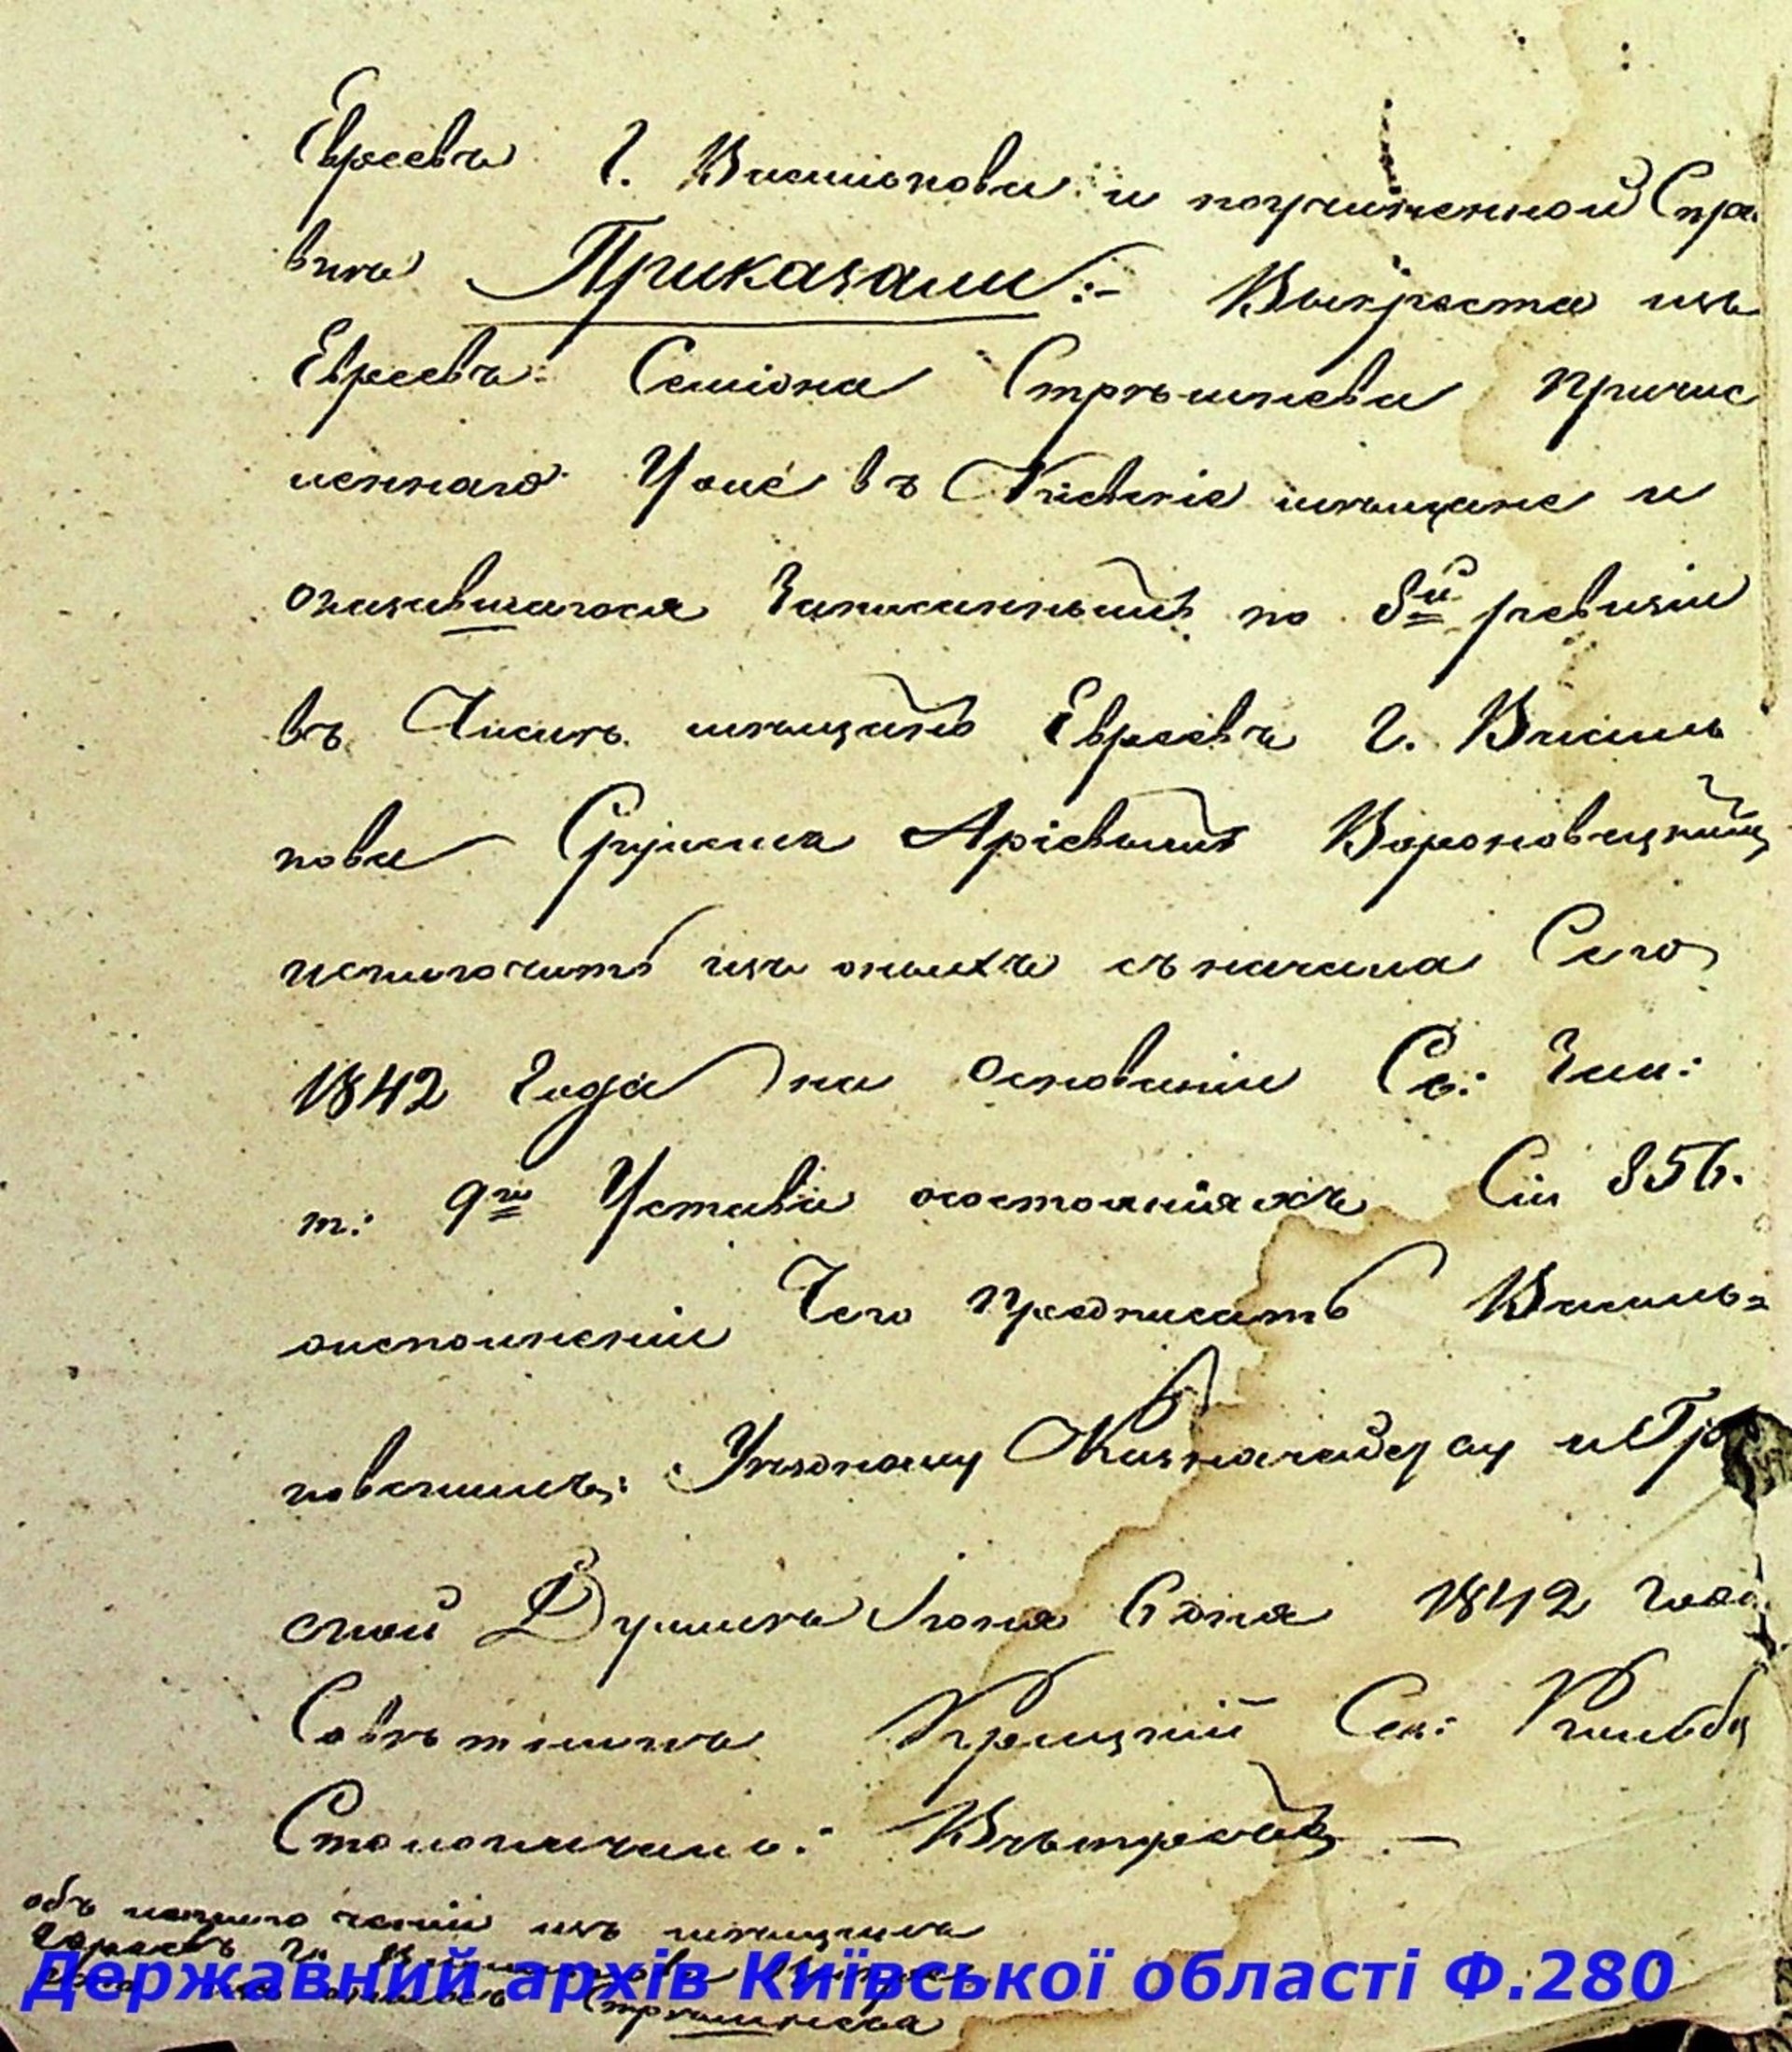 Евреевъ Г. Василькова и подчиненной Спра
вкѣ Приказали:- Выкреста изъ
Евреевъ Семіона Стрѣшнева причис
леннаго Уже въ Кіевскіе мѣщане и
оказавшагося Записаннымъ по 8й ревизіи
въ Числѣ мѣщанъ Евреевъ Г. Василь
кова Сруля Аріевымъ Вороновецкимъ
исключить изъ оныхъ съ начала Сего
1842 Года на основаніи Св: Зак:
т: 9го Устава осостояніяхъ Ст: 856.
оисполненіи Чего предписать Василь=
ковскимъ: Уѣздному Казначейству и Гр
ской Думѣ Іюня 6 дня 1842 года
Совѣтникъ Сек:
Столоначаль:
объ исключеніи изъ мѣщанъ
Евреевъ г. Василькова
Стрѣшнева
Державний архів Київської області Ф.280